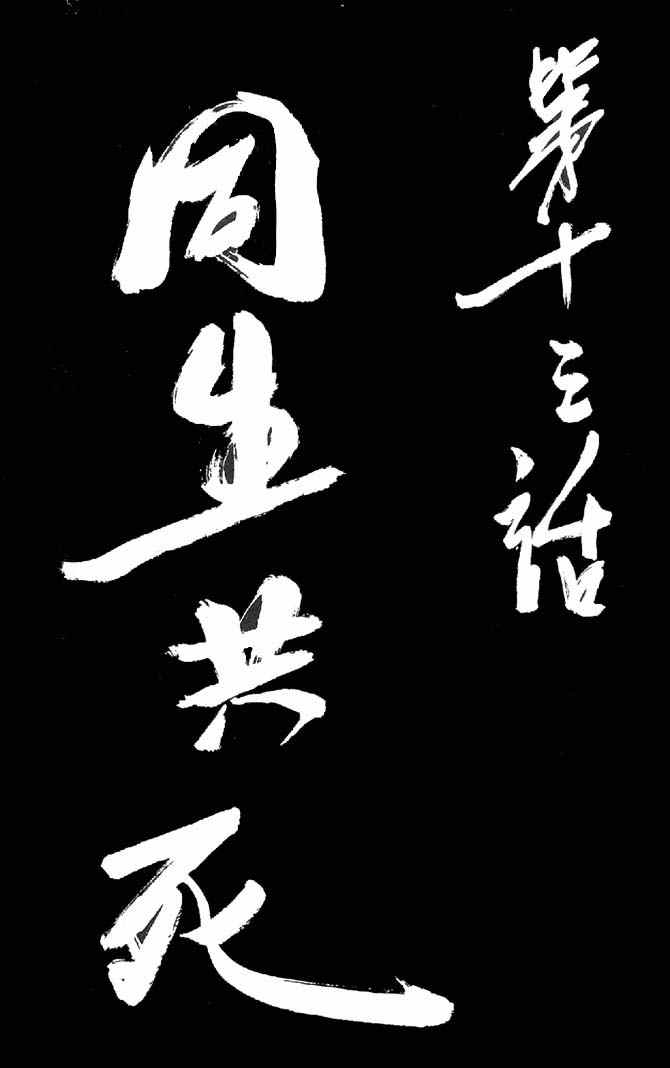 第十三話
同生共死